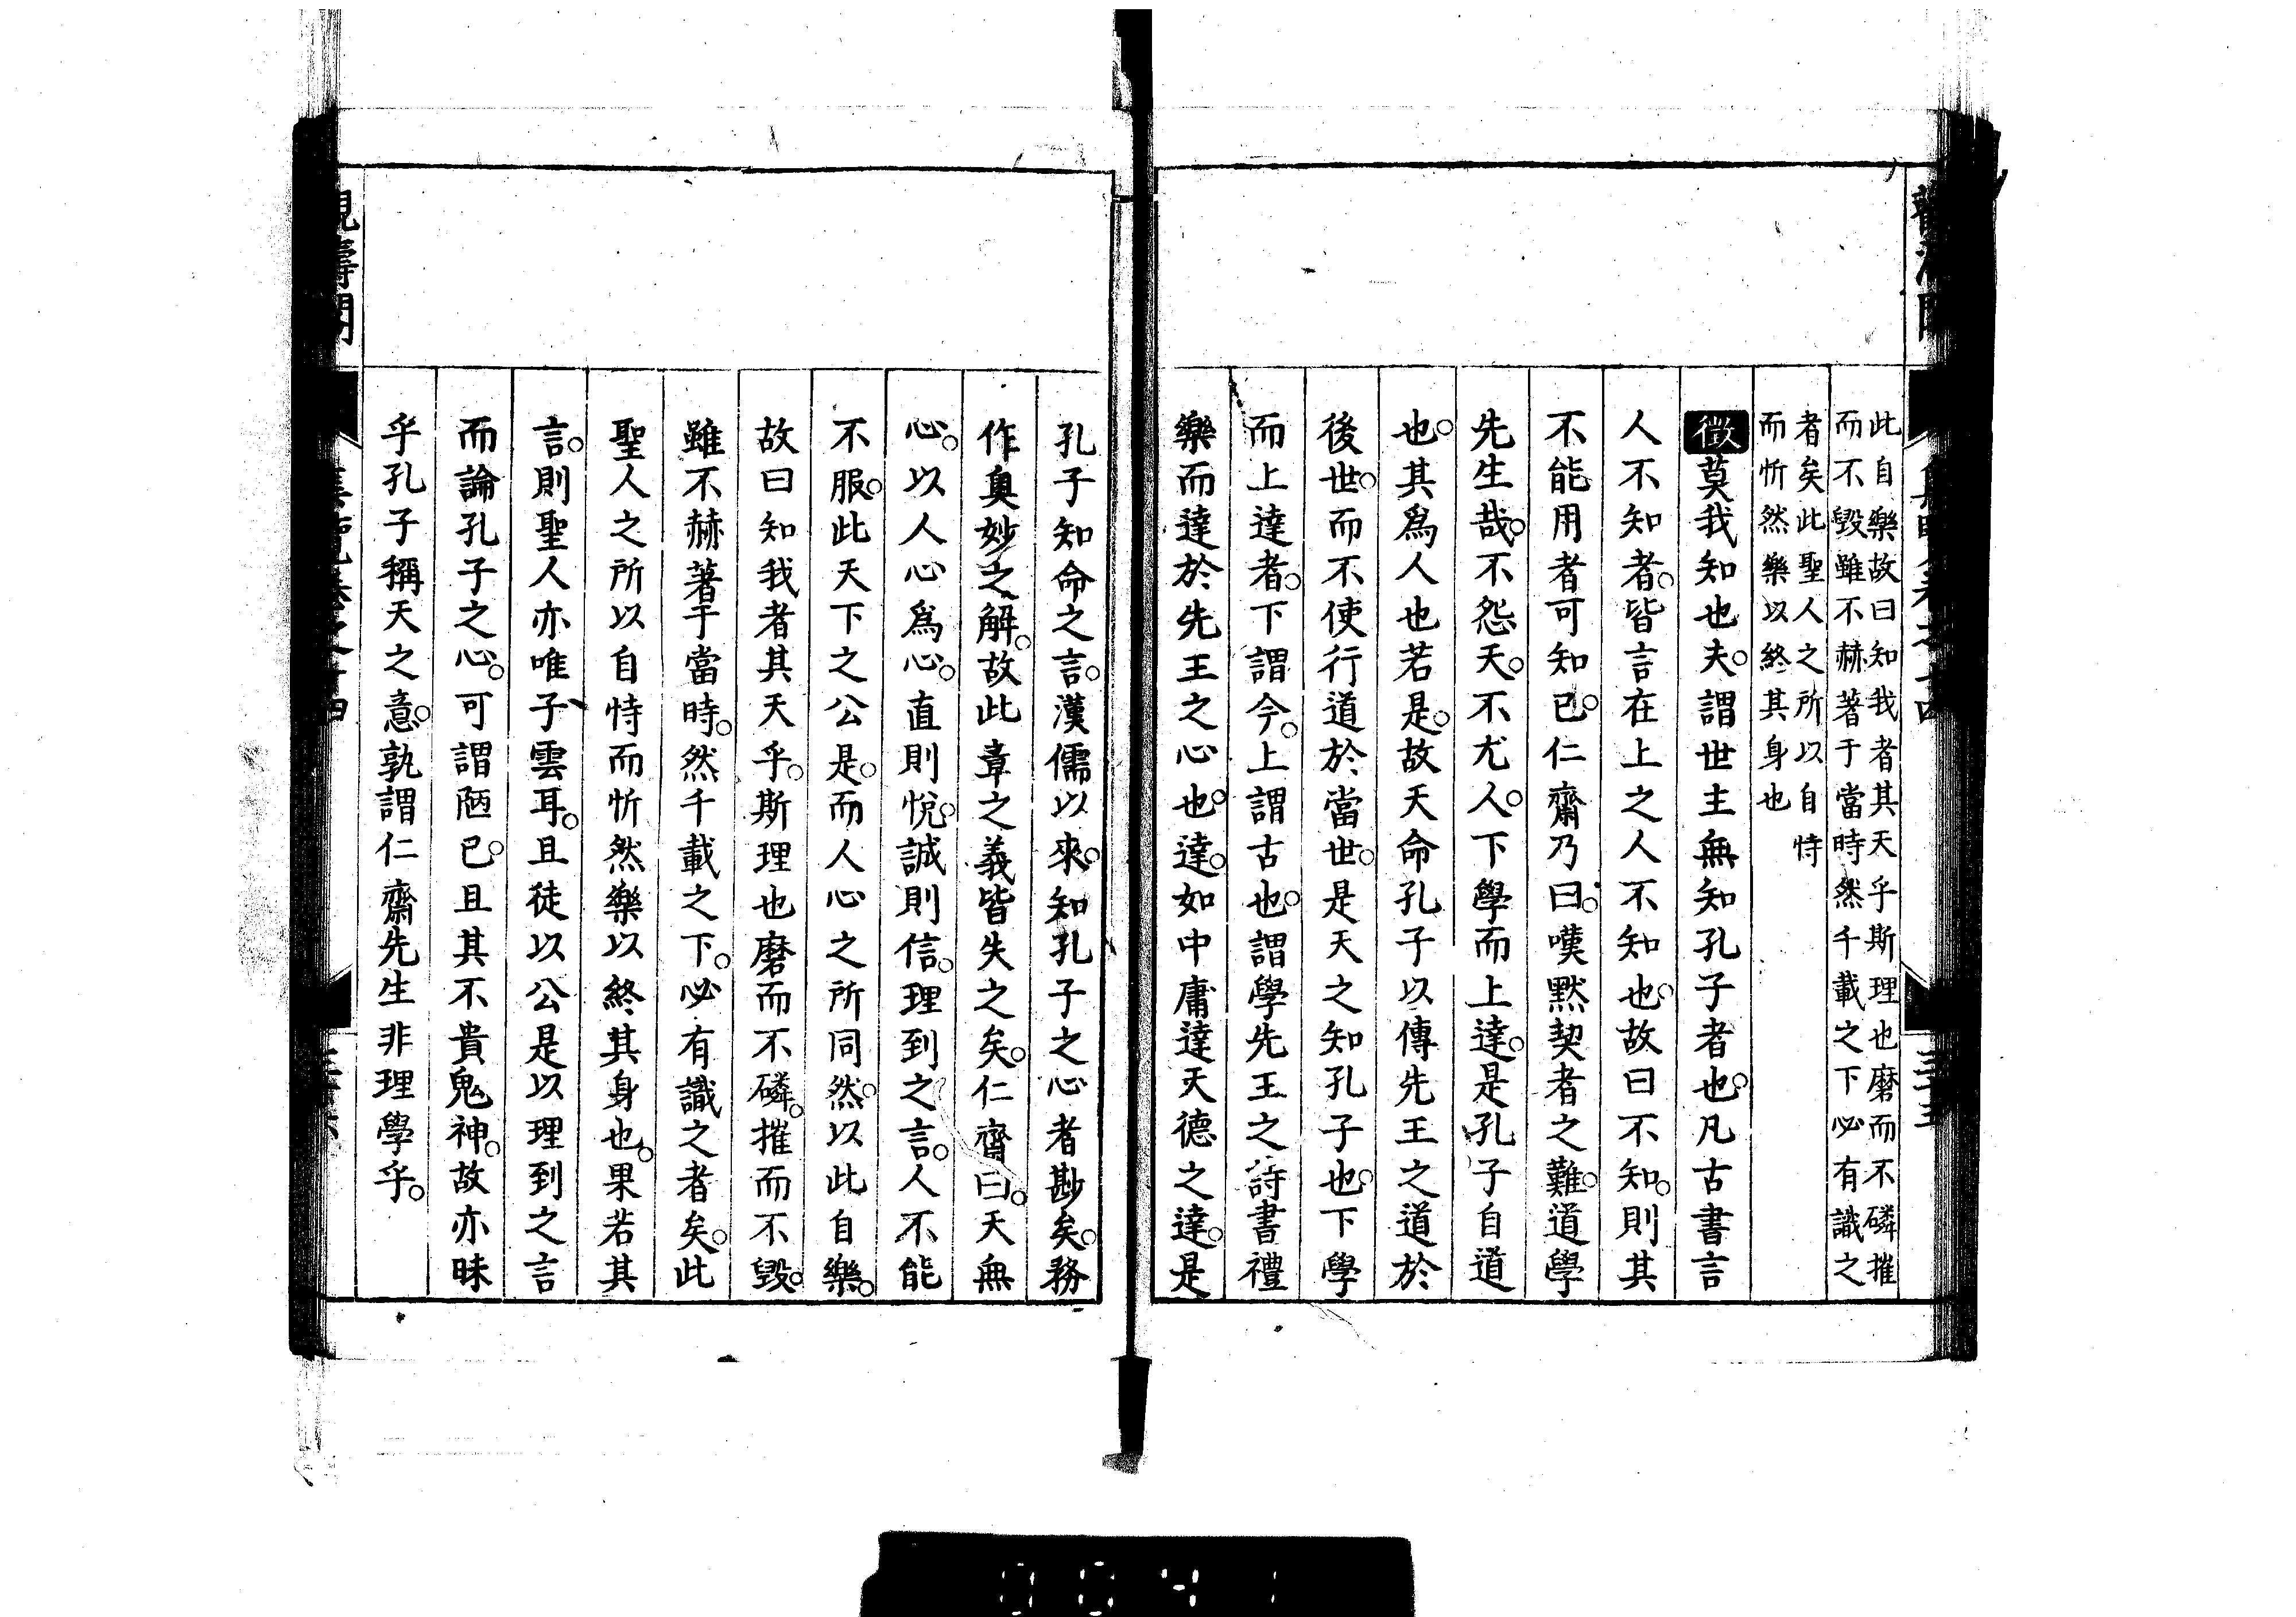 此自樂故曰知我者其天乎斯理也磨而不磷摧
而不毀雖不赫著于當時然千載之下必有識之
者矣此聖人之所以自恃
而忻然樂以終其身也
徵莫我知也夫。謂世主無知孔子者也。凡古書言
人不知者。皆言在上之人不知也。故曰不知。則其
不能用者可知已。仁齋乃曰。嘆黙契者之難。道學
先生哉。不怨天。不尤人。下學而上達。是孔子自道
也。其爲人也若是。故天命孔子以傳先王之道於
後世。而不使行道於當世。是天之知孔子也。下學
而上達者。下謂今。上謂古也。謂學先王之詩書禮
樂而達於先王之心也。達。如中庸達天德之達。是
孔子知命之言。漢儒以來。知孔子之心者尠矣。務
作奧妙之解。故此章之義皆失之矣。仁齋曰。天無
心。以人心爲心。直則悅。誠則信。理到之言。人不能
不服。此天下之公是。而人心之所同然。以此自樂。
故曰知我者其天乎。斯理也磨而不磷。摧而不毀。
雖不赫著于當時。然千載之下。必有識之者矣。此
聖人之所以自恃而忻然樂以終其身也。果若其
言。則聖人亦唯子雲耳。且徒以公是以理到之言
而論孔子之心。可謂陋已。且其不貴鬼神。故亦昧
乎孔子稱天之意。孰謂仁齋先生非理學乎。
0041